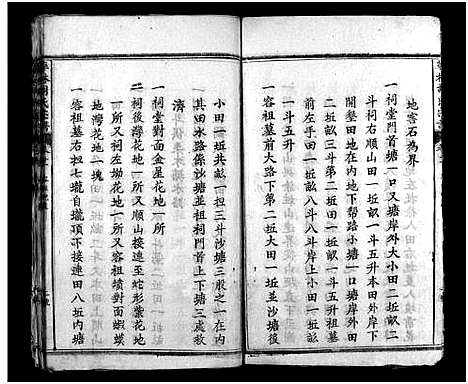 地雲石為界
一祠堂門首塘一口又塘岸外大小田二坵畝二
斗祠右順山田一坵畝一斗五升本田外岸下
開墾田地在內地下幫路小塘一口塘岸外田
二坵畝三斗第二坵大田一坵畝八斗岸上小田
前左手田一坵畝
一斗五升
一容祖墓前大路下第二坵大田一坵並沙塘下
小田一坵共畝二斗沙塘三股之一在內
其田水路係沙塘並祖祠門首上下塘三處救
濟
一祠堂對面金星花地一所
一祠後灣花地一所又順山接連至蛇形藂花地
一所又祠左坳花地一所又容祖墳對面蝦蟆
地灣花地一塊
一容祖墓右担七壠直壠頂下接連田八坵內塘